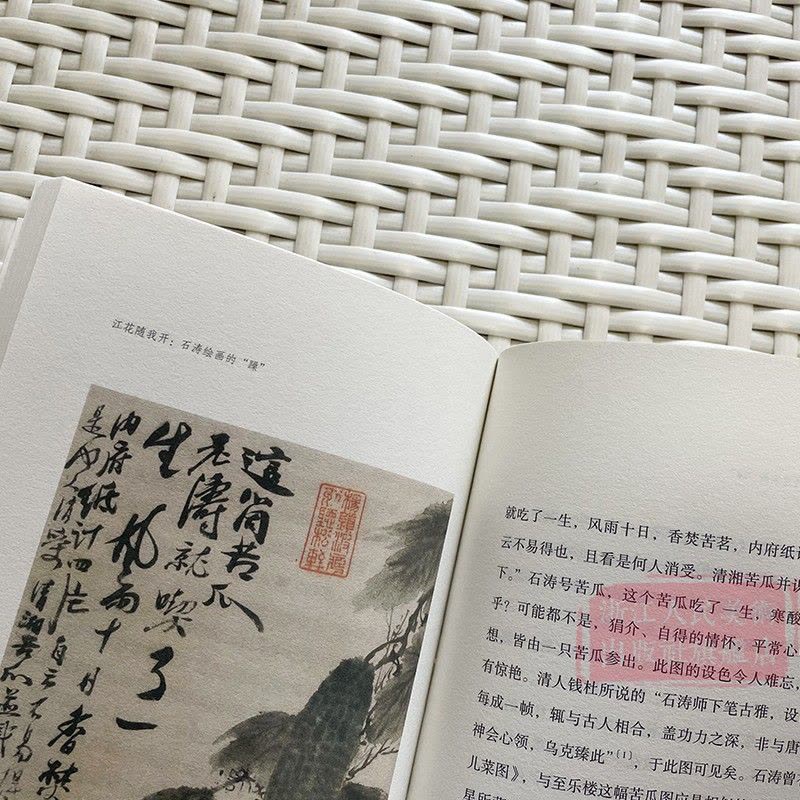 江花随我开：石涛绘画的“躁”
這箇苦瓜
老濤就喫了一
生風雨十日香焚
内府紙計四片自云不易得
是何人消受清湘苦瓜並識
就吃了一生，风雨十日，香焚苦茗，内府纸计
云不易得也，且看是何人消受。清湘苦瓜并识
下。”石涛号苦瓜，这个苦瓜吃了一生，寒酸
乎？可能都不是，狷介、自得的情怀，平常心
想，皆由一只苦瓜参出。此图的设色令人难忘，
有惊艳。清人钱杜所说的“石涛师下笔古雅，设
每成一帧，辄与古人相合，盖功力之深，非与唐
神会心领，乌克臻此”〔1〕，于此图可见矣。石涛曾
儿菜图》，与至乐楼这幅苦瓜图应是
浙江人民美
出版社旗舰店